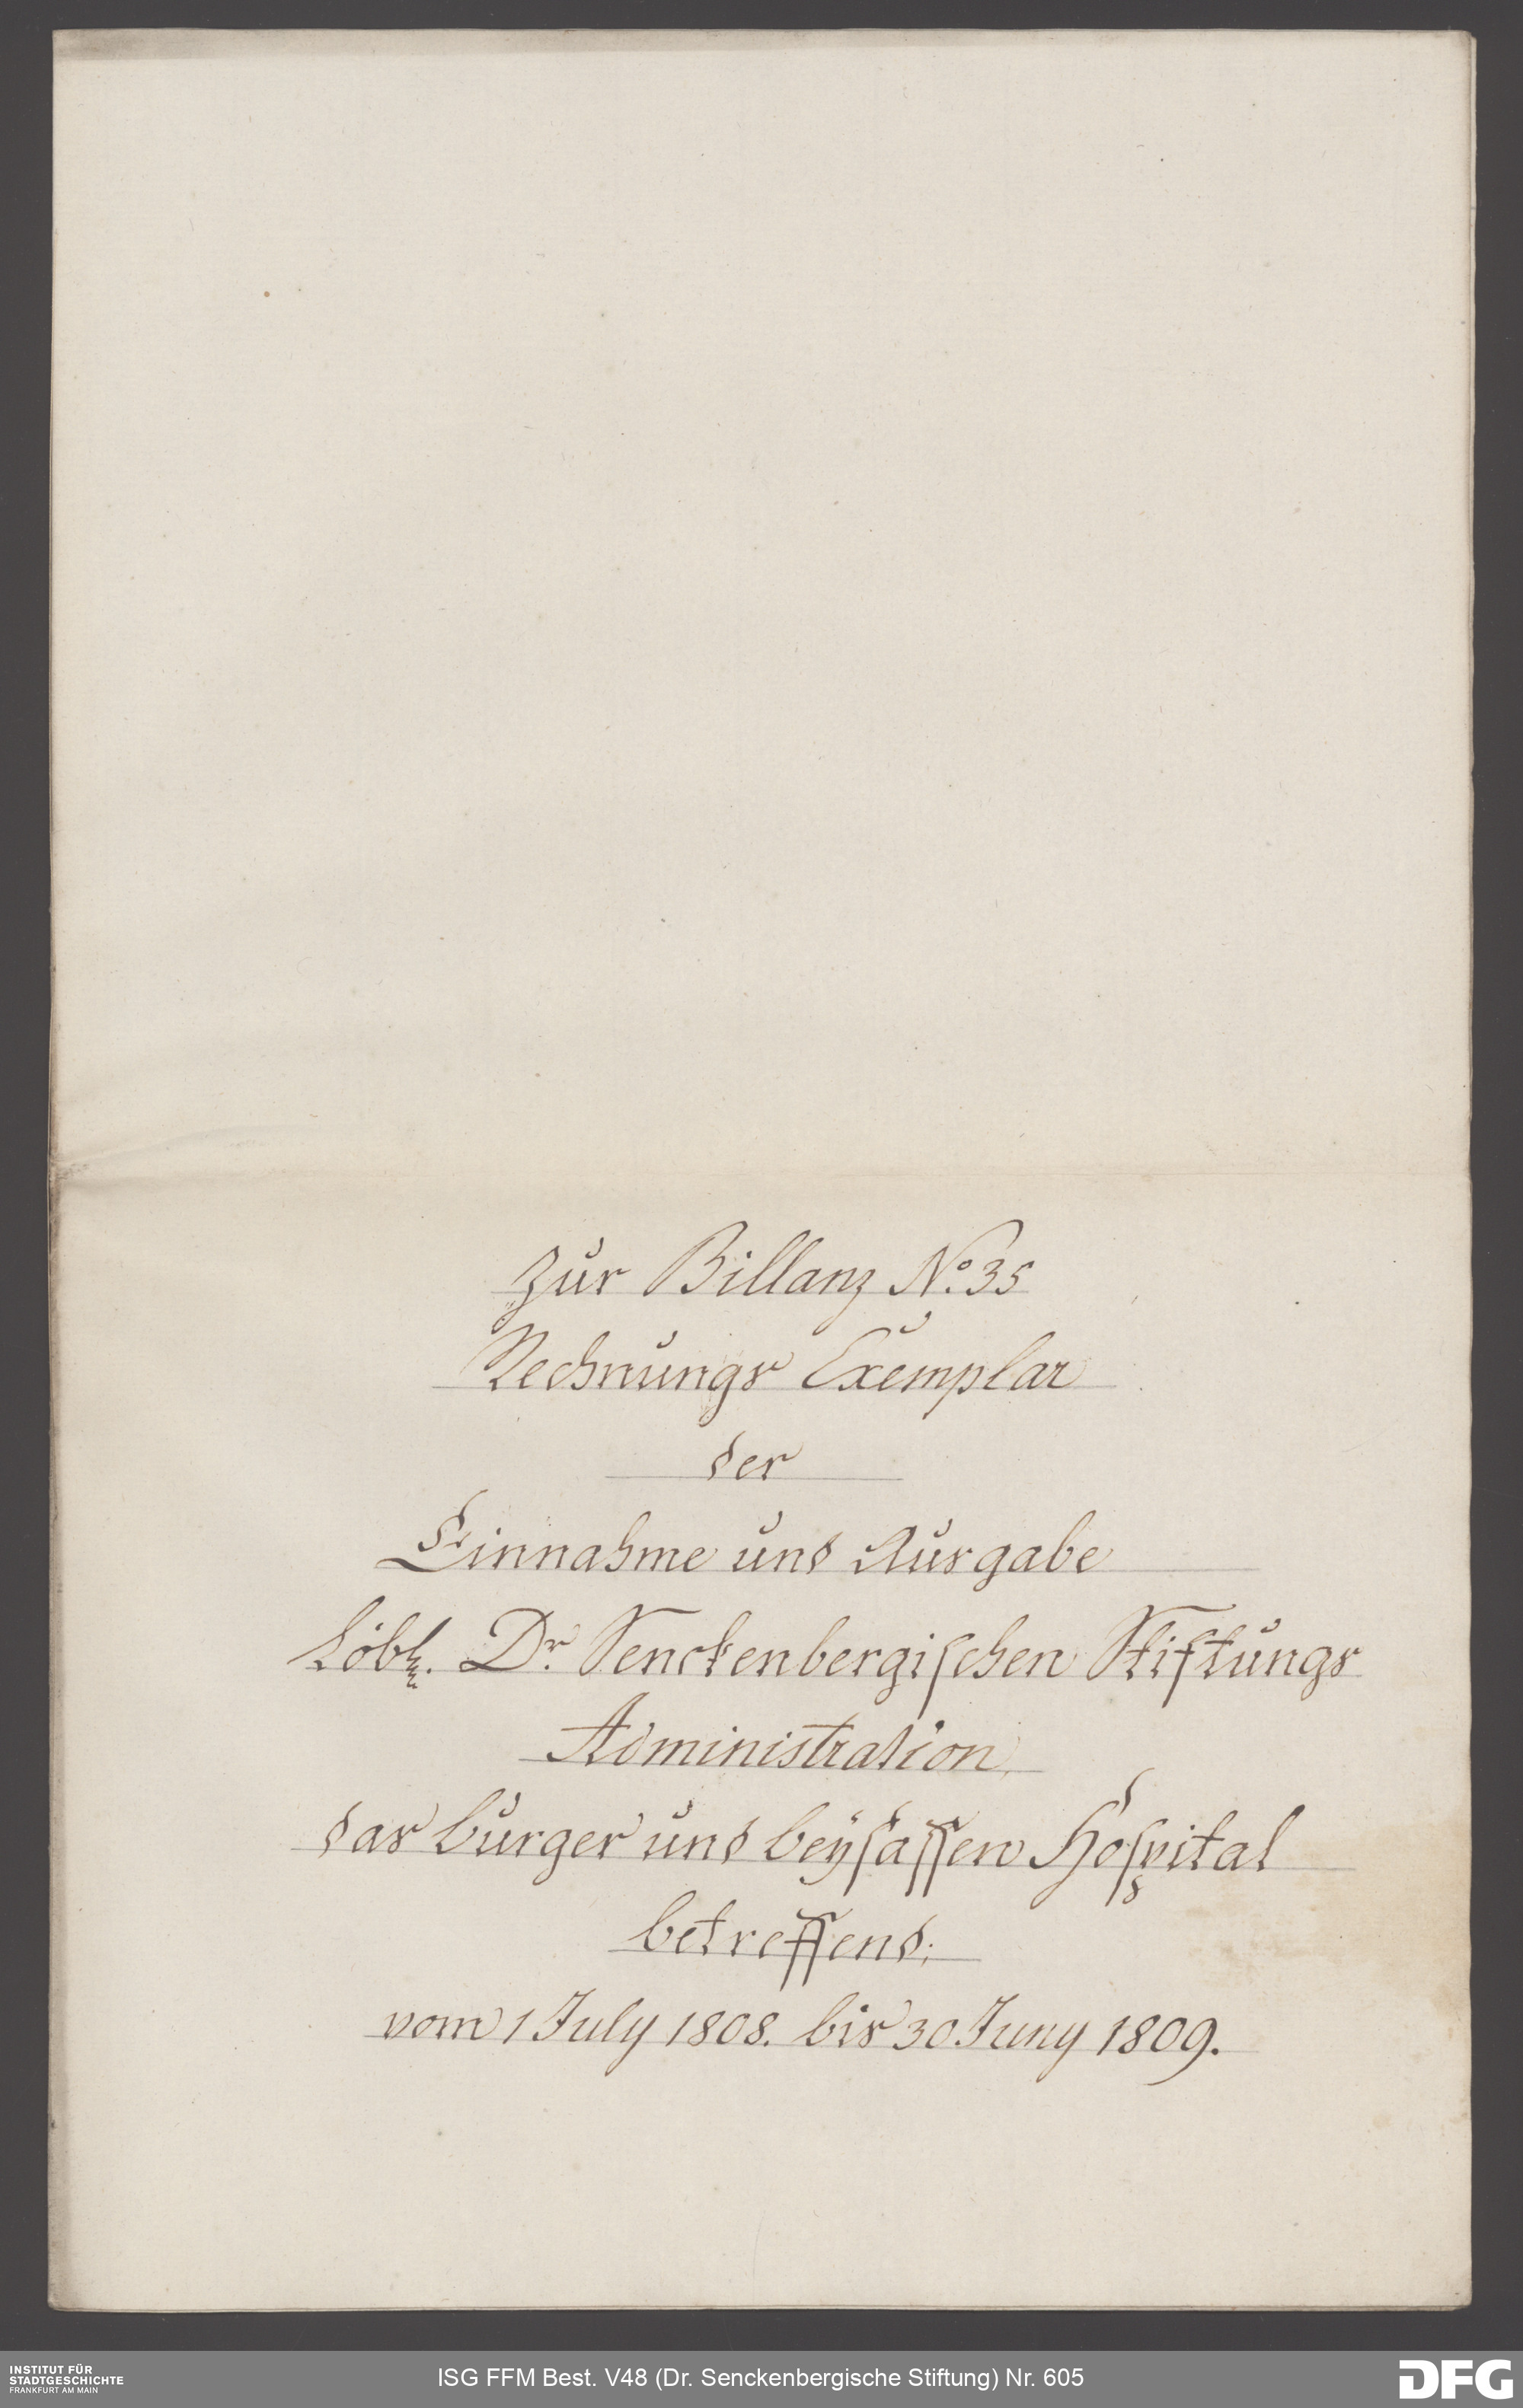 Zur Billanz No. 35
Rechnungs Exemplar
der
Einnahme und Ausgabe
Löbl. Dr. Senckenbergischen Stiftungs
Administration
das bürger und beÿsassen Hospital
betreffend:
vom 1 July 1808. bis 30 Juny 1809.
INSTITUT FÜR
STADTGESCHICHTE
FRANKFURT AM MAIN
ISG FFM Best. V48 (Dr. Senckenbergische Stiftung) Nr. 605
DFG